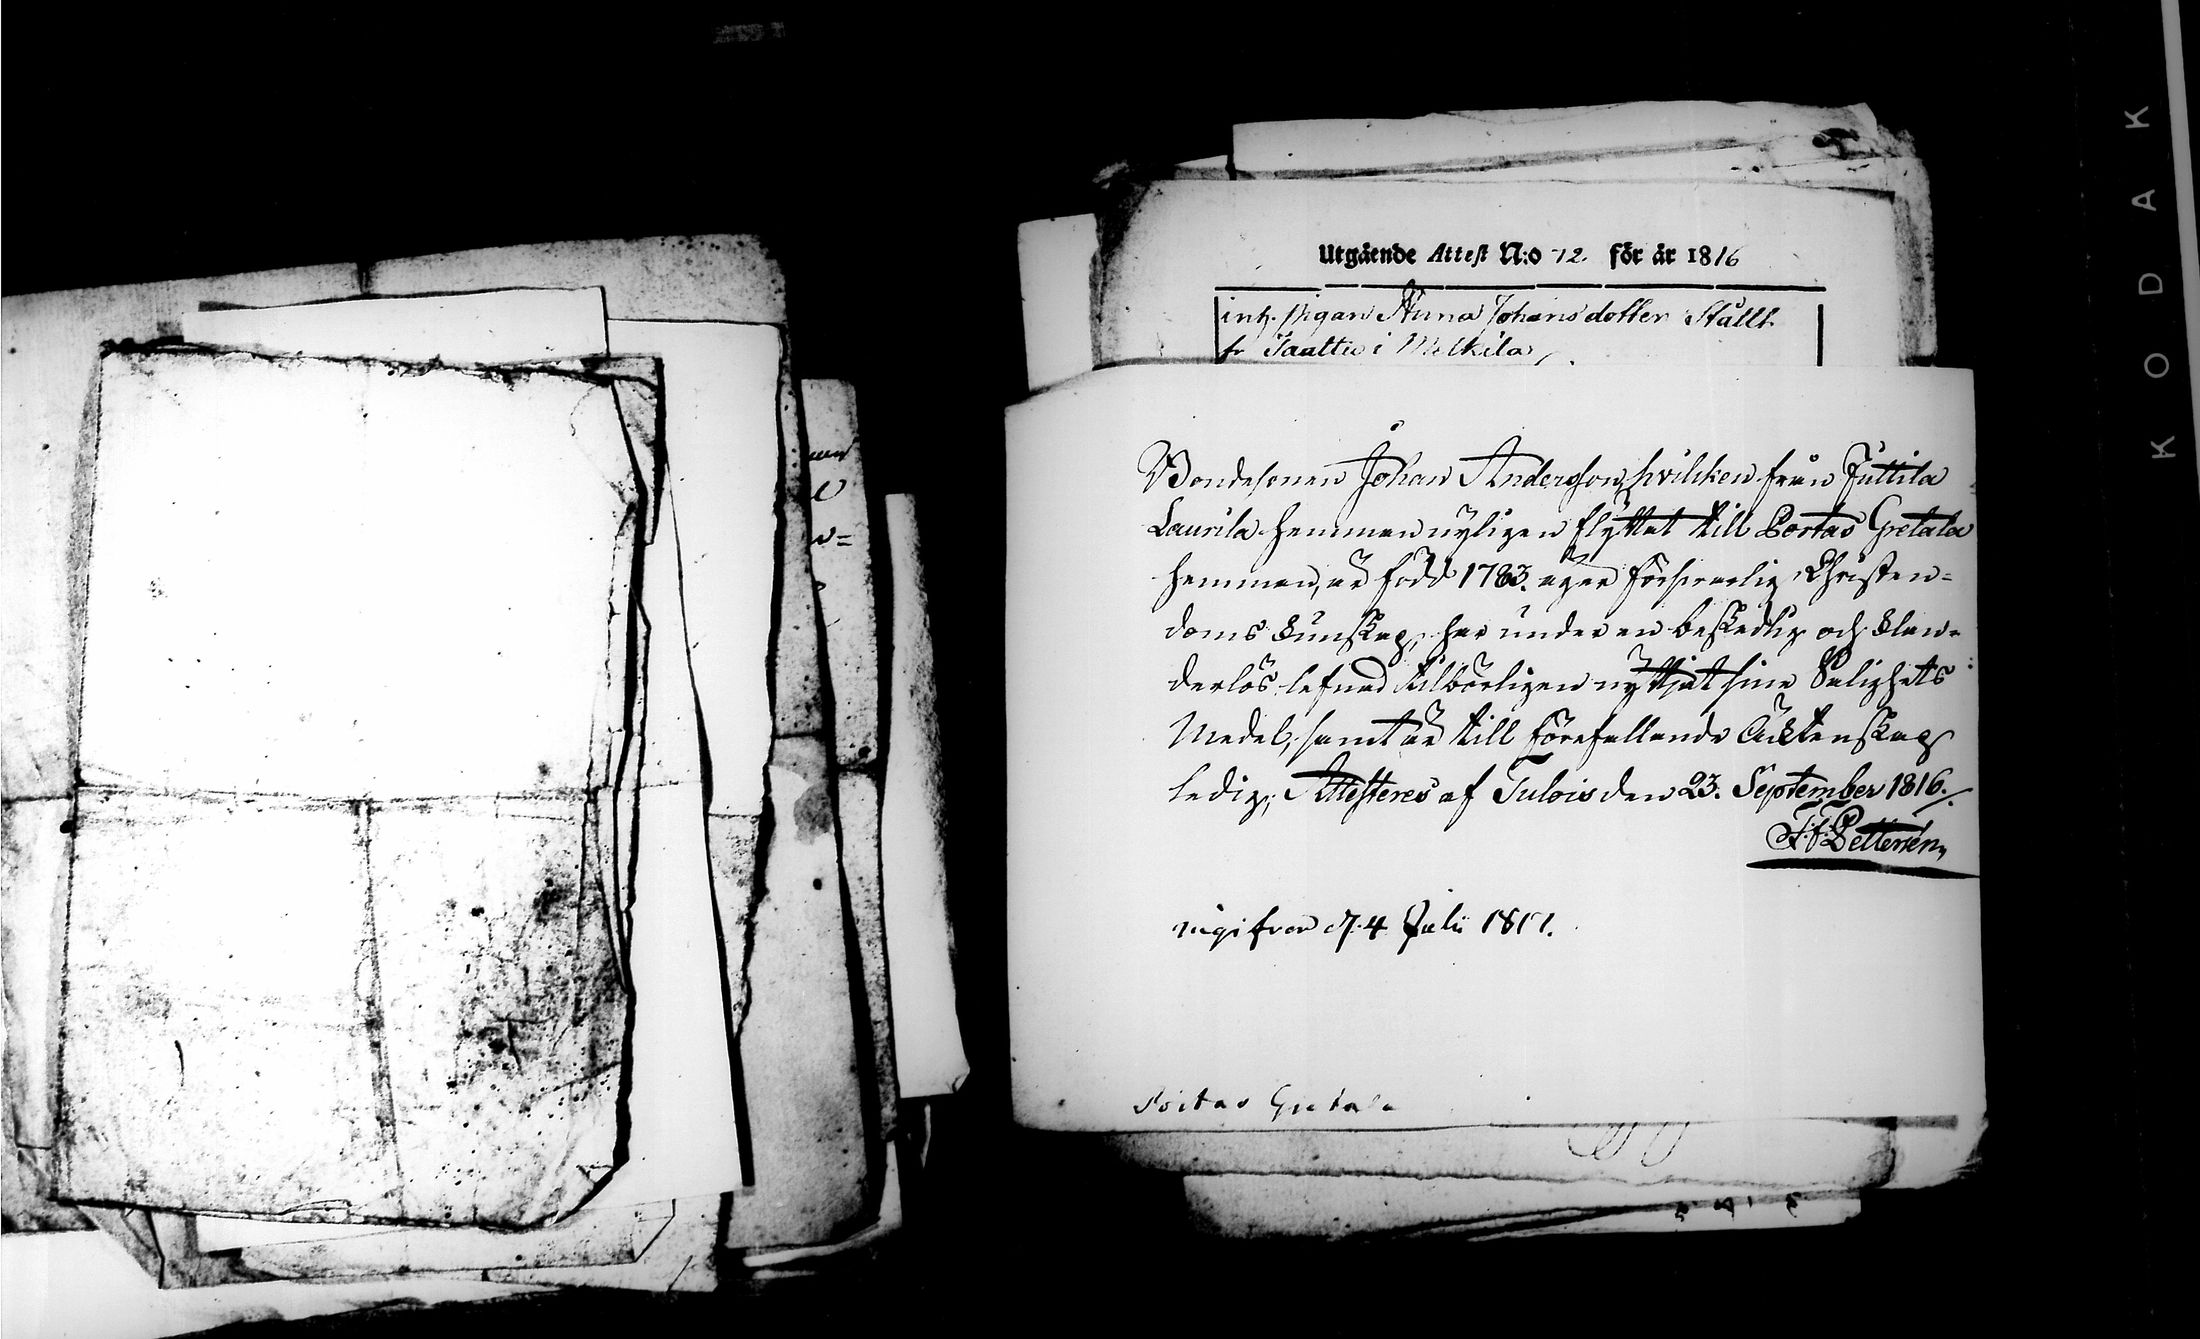 Utgående Attest N:o 72. för år 1816
inh. pigan Anna Johansdotter Stållt
fr Jaattu i Melkila
Bondesonen Johan Andersson, hvilken från Juttila
Laurila hemman nyligen flyttat till Portas Gretala
hemman, är född 1783. äger försvarlig Christen=
doms kunskap, har under en beskedlig och klan=
derlös lefnad tilbörligen nyttjat sine Salighets
Medel, samt är till förefallande Äcktenskap
ledig; Attesteres af Tulois den 23. September 1816./.
Pettersén
vigifven d. 4 Julii 1817.
Portas Gretala
KODAK